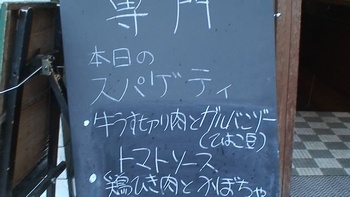 専門
本日の
スパゲティ
・牛うす切り肉とガルバンゾー
(ひよこ豆)
トマトソース
・鶏ひき肉とかぼちゃ